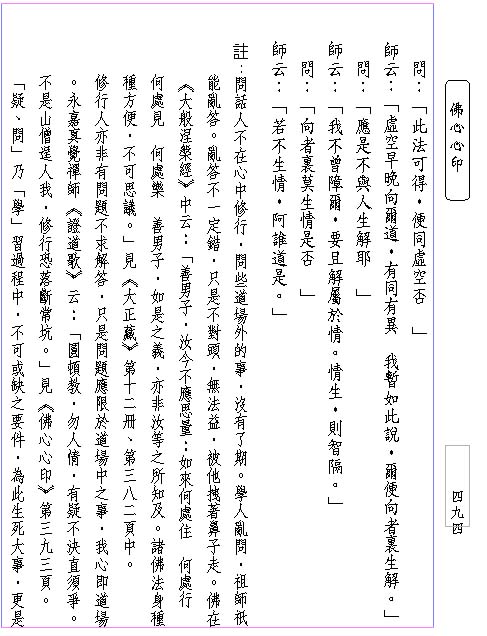 佛心心印
四九四
問：「此法可得，便同虛空否　」
師云：「虛空早晚向爾道，有同有異　我暫如此說，爾便向者裏生解。」
問：「應是不與人生解耶　」
師云：「我不曾障爾，要且解屬於情。情生，則智隔。」
問：「向者裏莫生情是否　」
師云：「若不生情，阿誰道是。」
註：問話人不在心中修行，問些道場外的事，沒有了期。學人亂問，祖師祇
能亂答。亂答不一定錯，只是不對頭，無法益，被他拽著鼻子走。佛在
《大般涅槃經》中云：「善男子，汝今不應思量：如來何處住　何處行　
何處見　何處樂　善男子，如是之義，亦非汝等之所知及。諸佛法身種
種方便，不可思議。」見《大正藏》第十二冊、第三八二頁中。
修行人亦非有問題不求解答，只是問題應限於道場中之事，我心即道場
。永嘉真覺禪師《證道歌》云：「圓頓教，勿人情，有疑不決直須爭。
不是山僧逞人我，修行恐落斷常坑。」見《佛心心印》第三九三頁。
「疑、問」乃「學」習過程中，不可或缺之要件，為此生死大事，更是